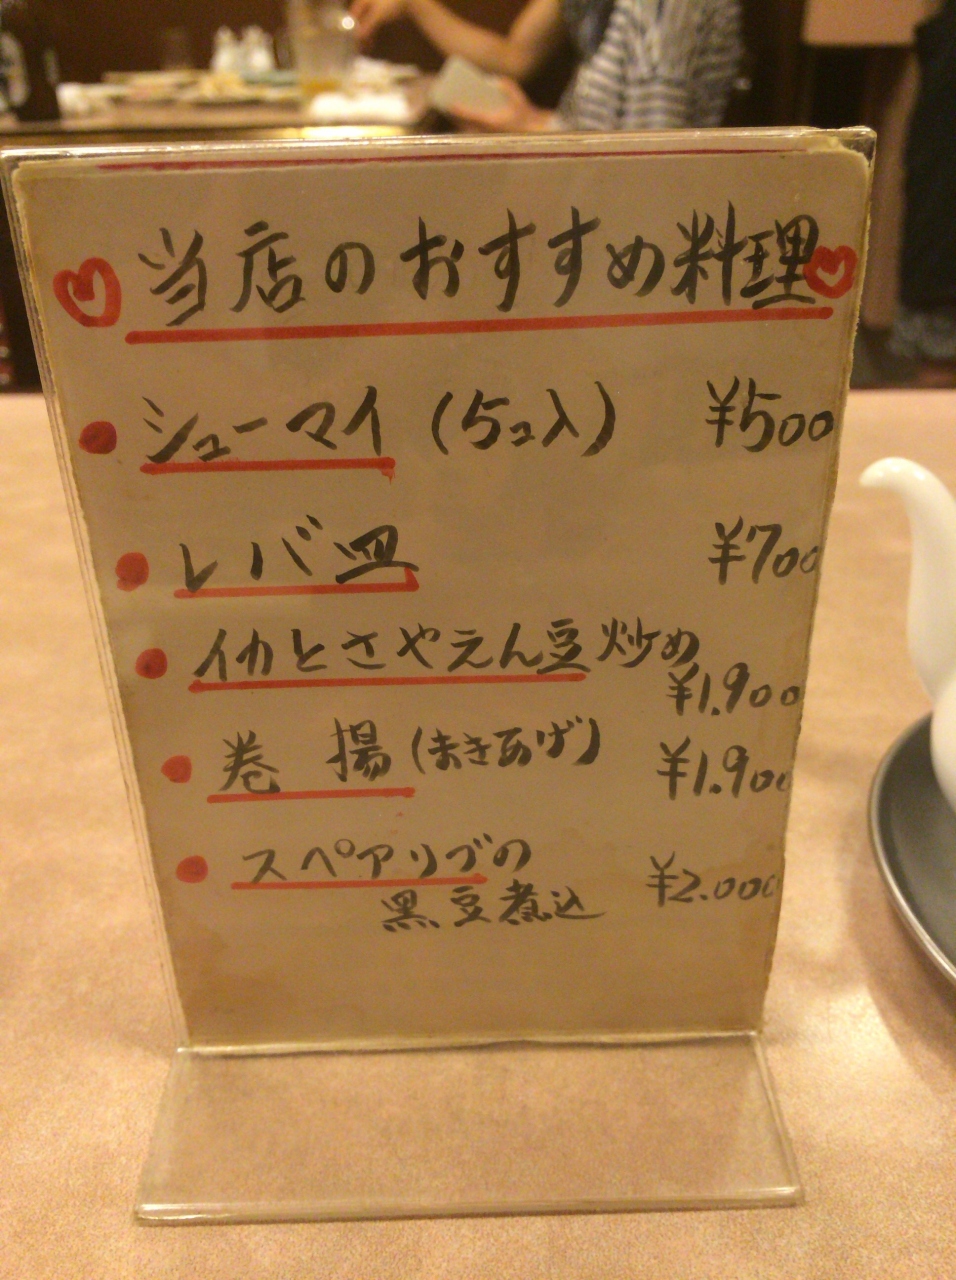 当店のおすすめ料理
シューマイ(5コ入) ¥500
レバ皿 ¥700
イカとさやえん豆炒め
¥1.900
巻揚(まきあげ) ¥1.900
スペアリブの
黒豆煮込 ¥2.000